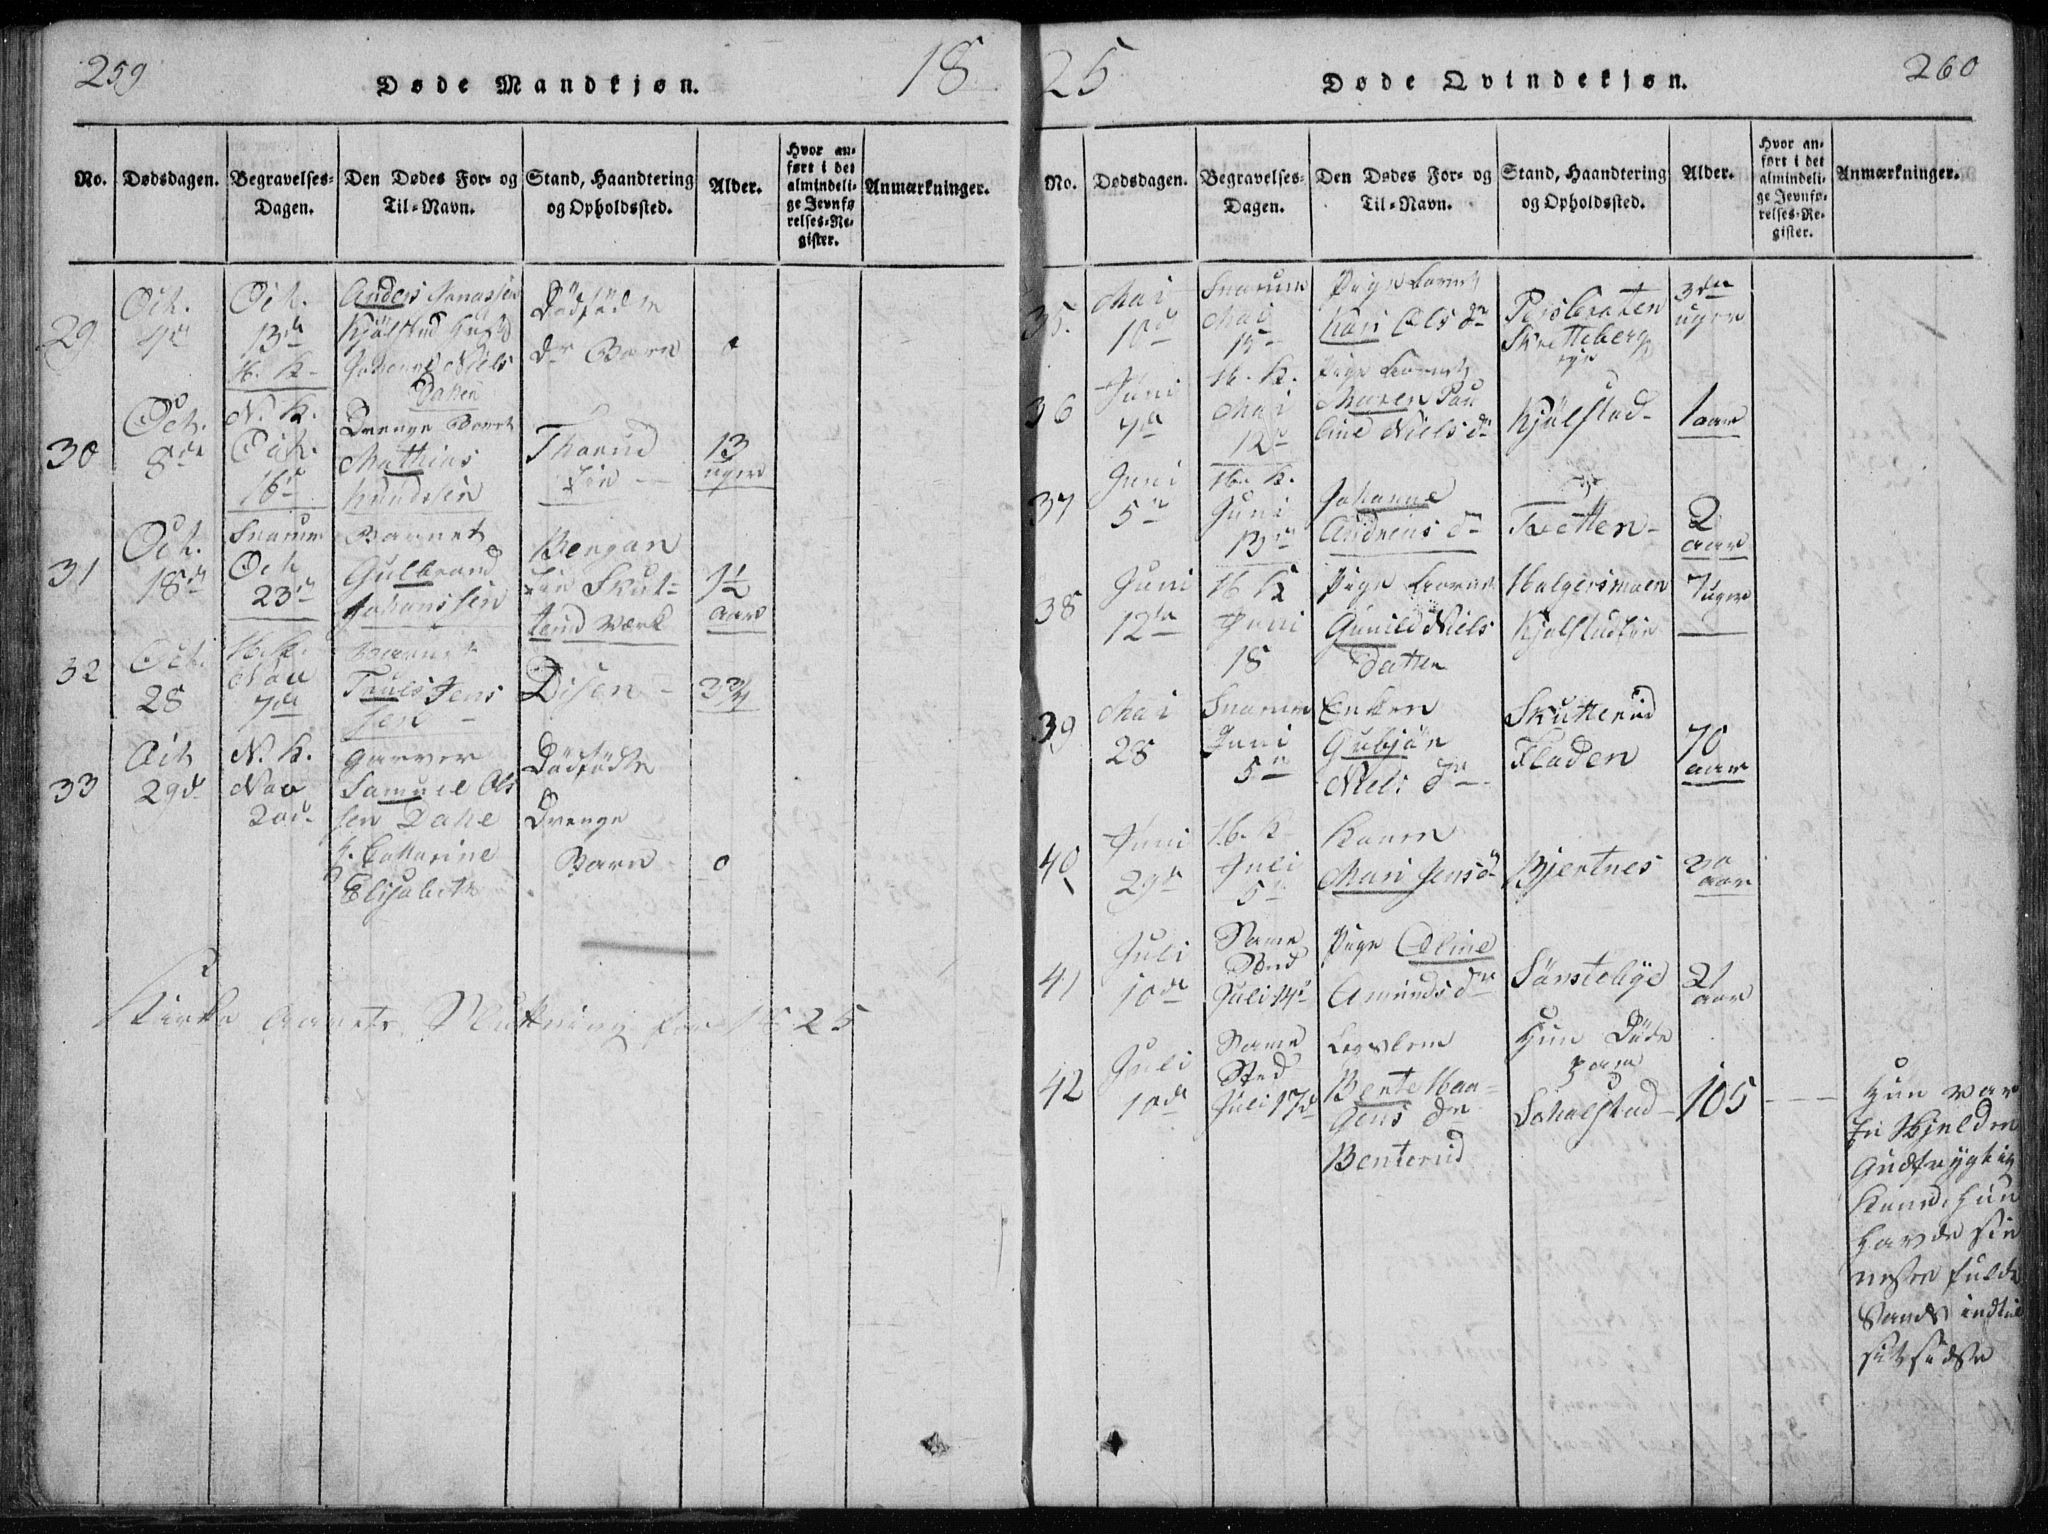 259
Døde Mandkjøn.
18
No.
Dødsdagen.
Begravelses-
Dagen.
Den Dødes For- og
Til-Navn.
Stand, Haandtering
og Opholdssted.
Alder.
Hvor an-
ført i det
almindeli-
ge Jevnfø
relses-Re-
gister.
Anmærkninger.
29
Oct.
4de
Oct.
13de
H. K.
Anders Jonassen
Kjølstad
Johanne Niels
Datter
Dødfødte
Børn
0
30
Oct.
8de
N. K.
Oct.
16de
Drenge Barnet
Mathias
Knudssen
Thorud
Eie
13
uger
31
Oct.
18de
Snarum
Oct
23de
Barnet
Gulbrand
Johanssen
Bergan
Eie Skut-
terud Værk
1½
aar
32
Oct.
28
H. K.
Nov
7de
Barnet
Truls Jens
sen
Disen
3¾
33
Oct
29de
N. K.
Nov
20de
Garver
Samuel Ols
sen Dahl
Catharine
Elisabeth
Dødfødte
Drenge
Barn
0
Kirke Aarets Slutning for 1825
25
Døde Qvindekjøn.
260
No.
Dødsdagen.
Begravelses-
Dagen.
Den Dødes For- og
Til-Navn.
Stand, Haandtering
og Opholdssted.
Alder.
Hvor an-
ført i det
almindeli-
ge Jevnfø-
relses-Re-
gister.
Anmærkninger.
35.
Mai
10de
Snarum
Mai
15de
Pige Barnet
Kari Ols dr
Persbraten
Skretteberg
eje
3de
uger
36
Juni
7de
H. K.
Mai
12de
Pige Barnet
Maren Pau
line Niels dr
Kjølstad
1 aar
37
Juni
5te
H. K.
Juni
13de
Johanne
Andreas dr
Tretten
2
aar
38
Juni
12te
H K
Juni
18
Pige Barnet
Gunild Niels
Datter
Holgersmoen
Kjølstadeie
7 uger
39
Mai
28
Snarum
Juni
5te
Enken
Gubjør
Niels dr
Skutterud
Fladen
70
aar
40
Juni
29de
H. K
Juli
5te
Konen
Mari Jens dr
Bjertnes
20
aar
41
Juli
10de
Same
Sted
Juli 14de
Pige Oline
Amunds dr
Sønsteliye
21
aar
42
Juli
10de
Same
Sted
Juli 17de
Lægslem
Bente Haa-
gens dr
Benterud
Hun Døde
paa
Loholstad
105
Hun var
En Sjelden
Gudfrygtig
Kone, hun
havde sin
næsten fulde
Sands indtil
sit sidste